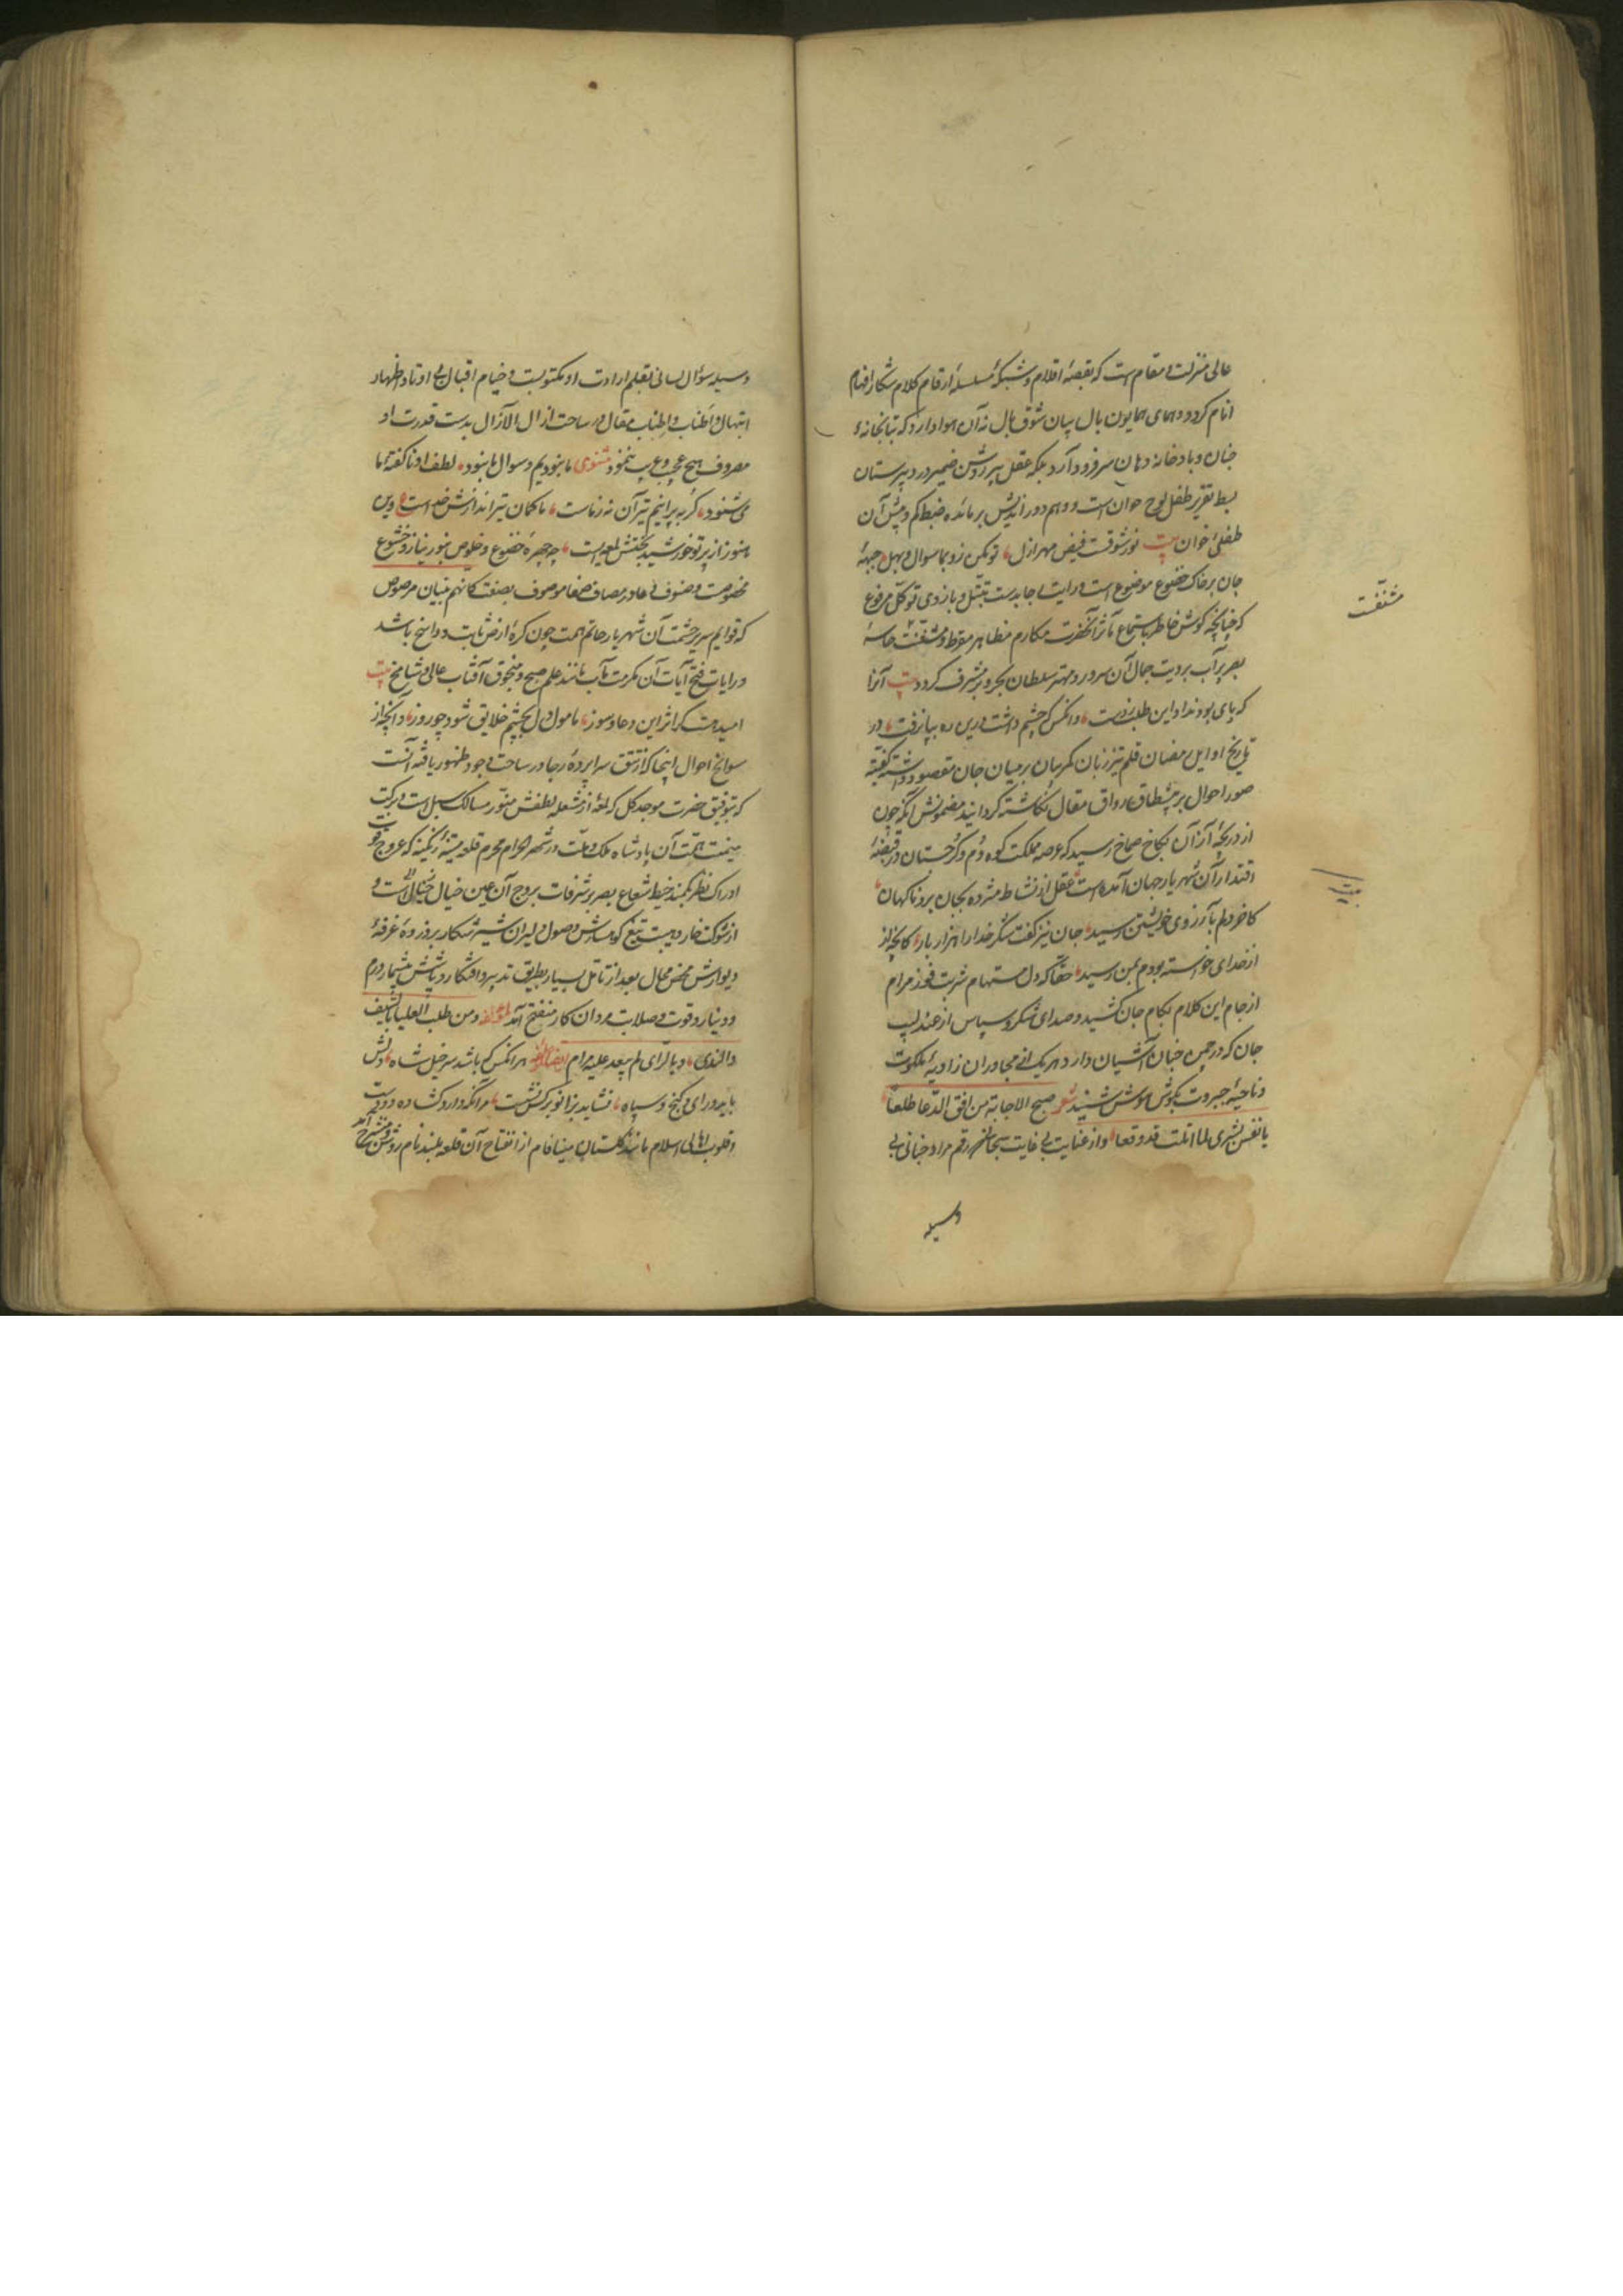 عالی منزلت و مقام است که بقبضهٔ اقلام و شبکهٔ سلسلهٔ ارقام کلام شکار افهام
انام کردد و همای همایون بال بیان شوق بال نه آن هوا دارد که بتابخانهٔ
جنان و بادخانه دهان سر فرود آرد بلکه عقل پیر روشن ضمیر در دبیرستان
بسط تقریر طفل لوح خوان است و وهم دوراندیش بر مائده ضبط کم و بیش آن
طفلی خوان بیت نور شوقت فیض مهر ازل تو مکن رو بما سوال و بهل جبههٔ
جان بر خاک خضوع موضوع است و رایت اجابدست تبتل و بازوی توکل مرفوع
که چنانچه کوش خاطر باستماع مآثر آنحضرت مکارم مظاهر مقرط و مشنّفست حاسهٔ
بصر پرآب برویت جمال آن سرور و مهتر سلطان بحر و بر مشرف کردد بیت آنرا
که پای بود نداد این طلب ز دست وانکس که چشم داشت درین ره بپا نرفت در
تاریخ اوایل رمضان قلم تیز زبان کمر بیان بر میان جان مقصود داشته کیفیة
صور احوال بر پیشطاق رواق مقال نکاشته کردانید مضمونش انکه چون
از دریچهٔ آذان بکاخ صماخ رسید که عرصه مملکت کوه دُم و کرجستان در قبضهٔ
اقتدار آن شهریار جهان آمده است عقل از نشاط مژده بجان برد ناکهان
کاخر دلم بآرزوی خویشتن رسید جان نیز کفت شکر خدا را هزار بار کانچه از
از خدای خواسته بودم بمن رسید حقّا که دل مستهام شربت فوز مرام
از جام این کلام بکام جان کشید و صدای شکر و سپاس از عندلیب
جان که در چمن جنان آشیان دارد هریک از مجاوران زاویهٔ ملکوت
و ناحیهٔ جبروت بکوش هوش شنید شعر صبح الاجابة من افق الدّعا طلعا
یا نفس بشری لما املت قد وقعا و از عنایت بی غایت سبحانی رقم مراد جنانی بی
وسیله
مشنّفت
بیت
وسیله سؤال لسانی بقلم ارادت او مکتوبست و خیام اقبال بی اوتاد اظهار
ابتهال و اطناب و اطناب مقال در ساحت ازال الآزال بدست قدرت او
معروف هیچ عجب و غریب ننمود مثنوی ما نبودیم و سوال ما نبود لطف او ناکفتهٔ ما
می شنود کر بپرانیم تیر آن نه ز ماست ما کمان و تیراندازش خداست و این
هنوز از پرتو خورشید بخشش لمعه است چه چهرهٔ خضوع و خلوص بنور نیاز و خشوع
مخصوصست و صنوف دعا در مصاف صفا موصوف بصفت کانهم بنیان مرصوص
که قوایم سریر حشمت آن شهریار حاتم همت چون کرهٔ ارض ثابت و راسخ باشد
و رایات فتح آیات آن مکرمت مآب مانند علم صبح و منجوق آفتاب عالی و شامخ بیت
امیدست کز اثر این دعا و سوز مامول دل بچشم خلایق شود چو روز و آنچه از
سوانح احوال اینجا که از تتق سراپردهٔ رجا در ساحت وجود ظهور یافته آنست
که بتوفیق حضرت موجد کل که لمعهٔ از مشعله لطفش منوّر مسالک سبل است و برکت
میمنت همت آن پادشاه ملک و ملت در شهر الحرام محرم قلعه سنکیسر که عروج
ادراک نظر بکمند خیط شعاع بصر بر شرفات بروج آن عین خیال خیالی است و
از شوک خار و بیت تیغ کوهسارش وصول دلیران شیر شکار بر ذروهٔ غرفهٔ
دیوارش محض محال بعد از تأمل بسیار بطریق تدبیر و افکار و پاشش بیشمار درم
و دینار و قوت و صلابت مردان کار منفتح آمد و من طلب العلیا بالسیف
والندی و بالرای لم یبعد علیه مرام هر انکس که باشد سر خیل شاه دلش
باید و رای و کنج و سپاه نشاید بزانو بر کس نشست مر آنکه دارد کشاده دو دست
و قلوب اهالی اسلام مانند کلستان مینافام از انفتاح آن قلعه بلند نام روشن و منشرح آمد